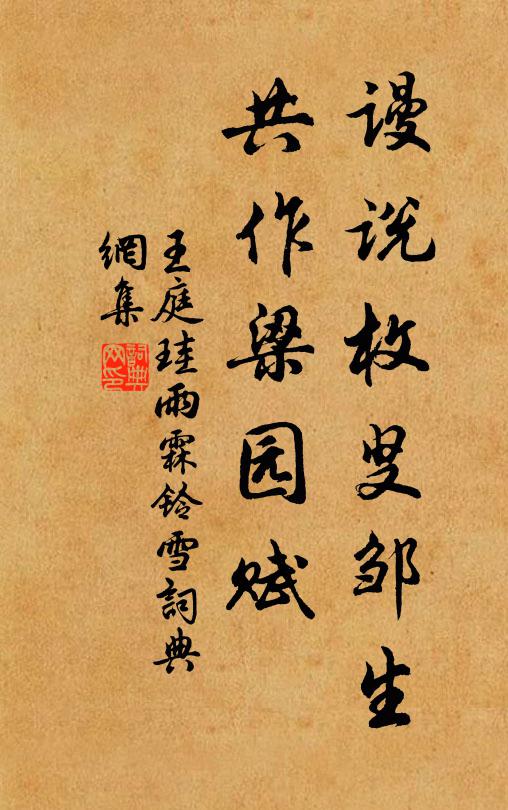 谩说枚叟邹生
共作梁园赋
王庭珪雨霖铃雪詞典
網集
詞典
网印